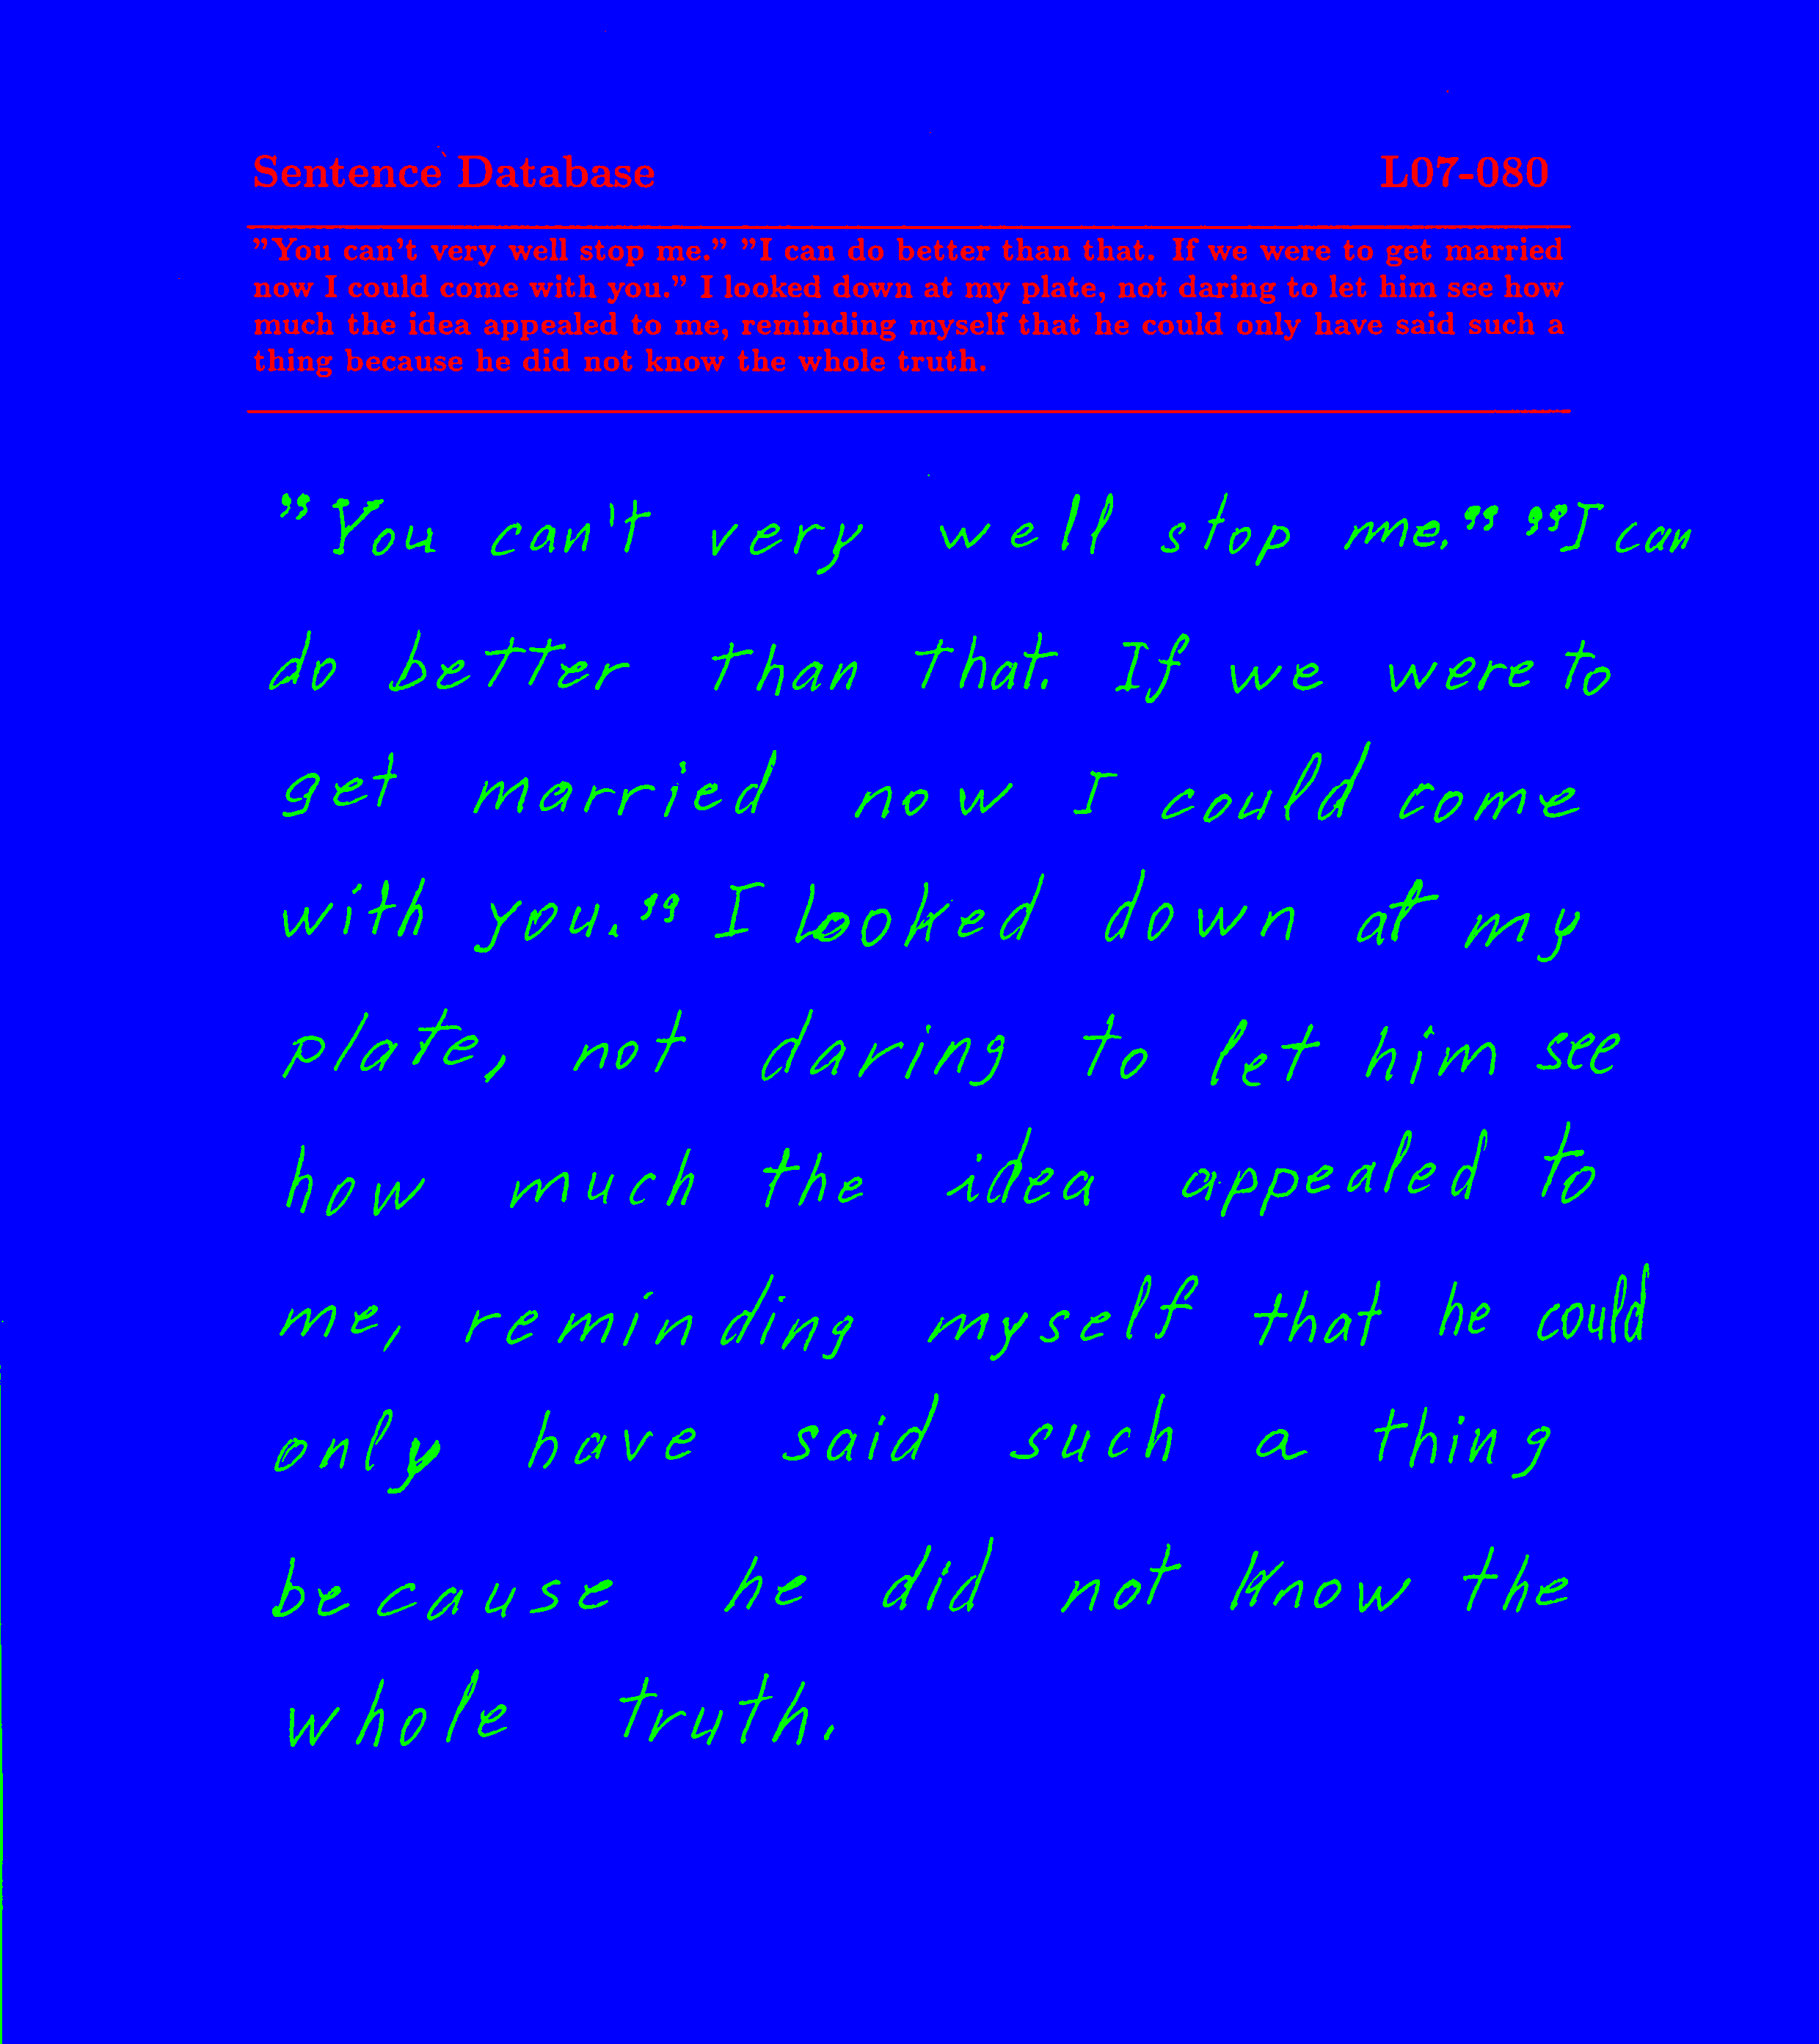 Sentence Database L07-080
"You can't very well stop me." "I can do better than that. If we were to get married
now I could come with you." I looked down at my plate, not daring to let him see how
much the idea appealed to me, reminding myself that he could only have said such a
thing because he did not know the whole truth.
"You can't very well stop me." "I can
do better than that. If we were to
get married now I could come
with you." I looked down at my
plate, not daring to let him see
how much the idea appealed to
me, reminding myself that he could
only have said such a thing
because he did not know the
whole truth.